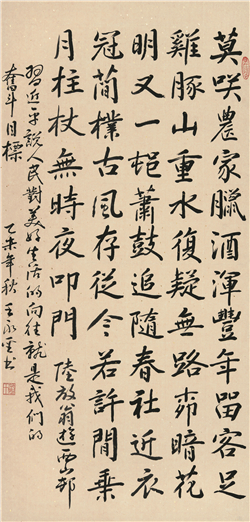 莫咲農家臘酒渾豐年畱客足
雞豚山重水復疑無路柳暗花
明又一邨蕭鼓追隨春社近衣
冠簡樸古風存從今若許閒乘
月柱杖無時夜叩門 陸放翁遊山西邨
習近平說人民對美好生活的向往就是我們的
奮斗目標 乙未年秋 王永书